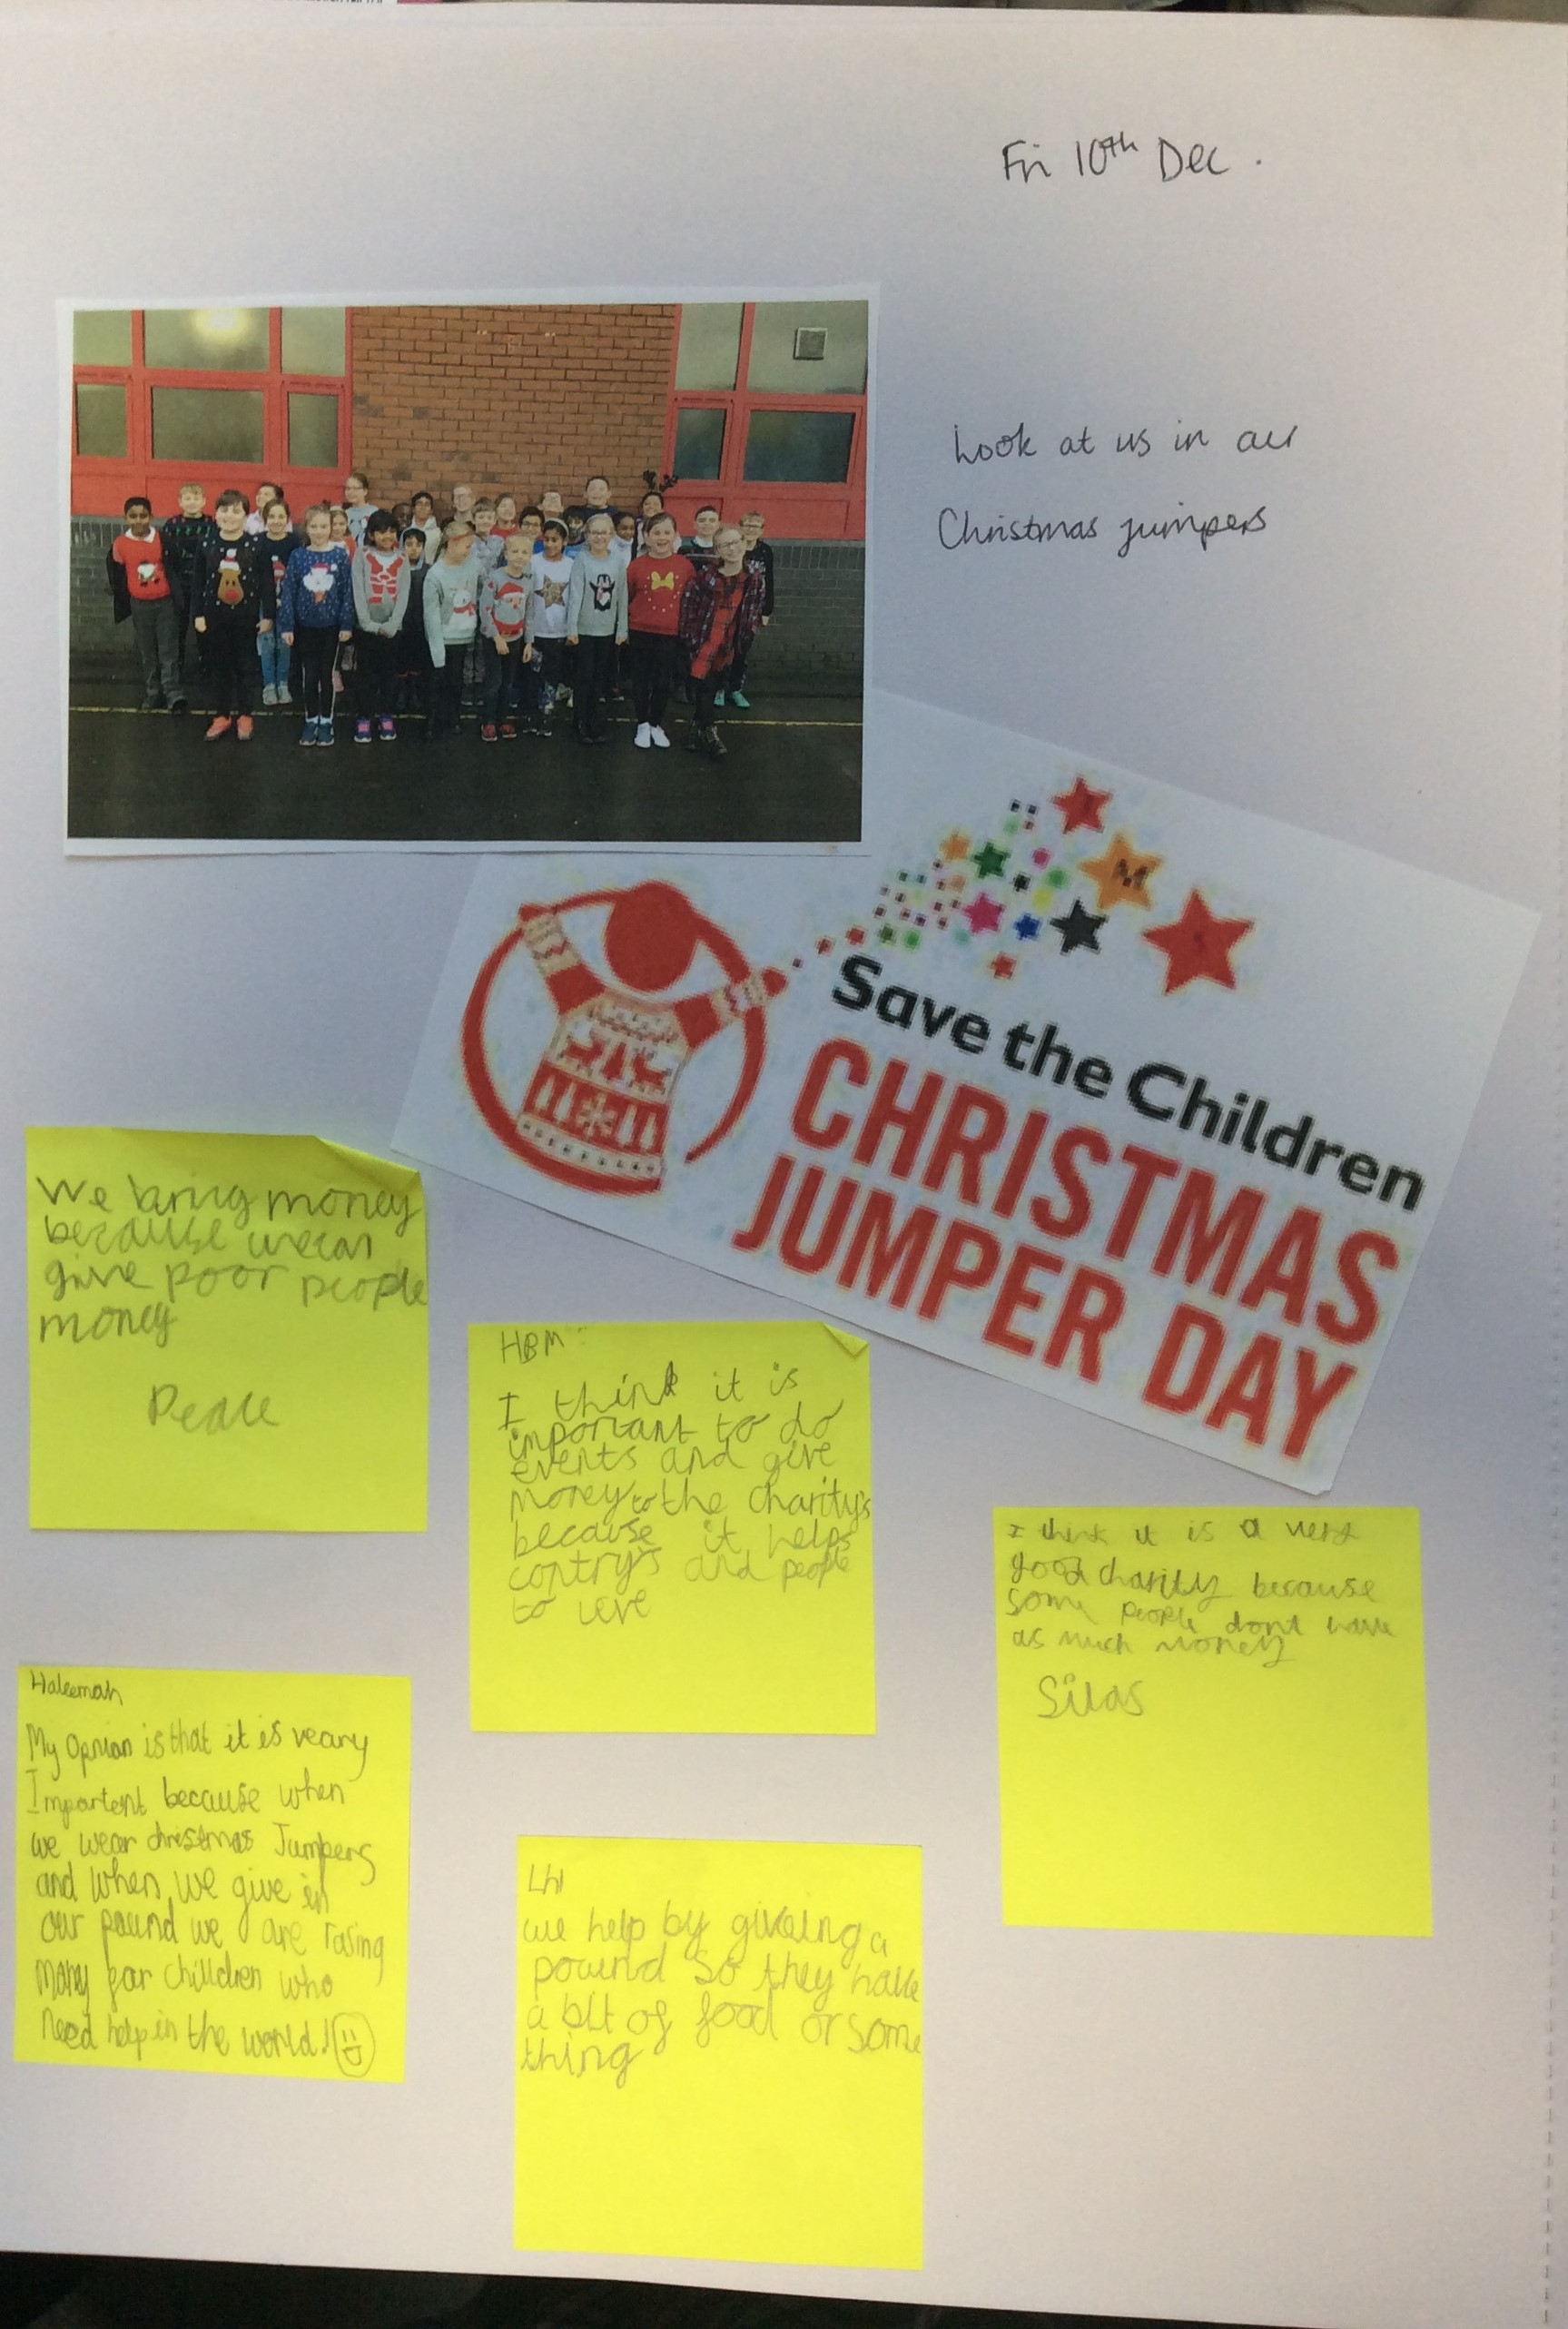 Fri 10th Dec.
Look at us in our
Christmas jumpers
M
S
Save the Children
CHRISTMAS
JUMPER DAY
We bring money
because we can
give poor people
money
Peace
HBM
I think it is
important to do
events and give
money to the charity's
because it helps
contry's and people
to
I think it is a very
good charity because
some people dont have
as much money
Silas
Haleemah
My Opnion is that it is veary
Importent because when
we wear christmas Jumpers
and when we give in
our pound we are rasing
many for chilldren who
need help in the world!
we help by giveing a
pound so they have
a bit of food or some
thing